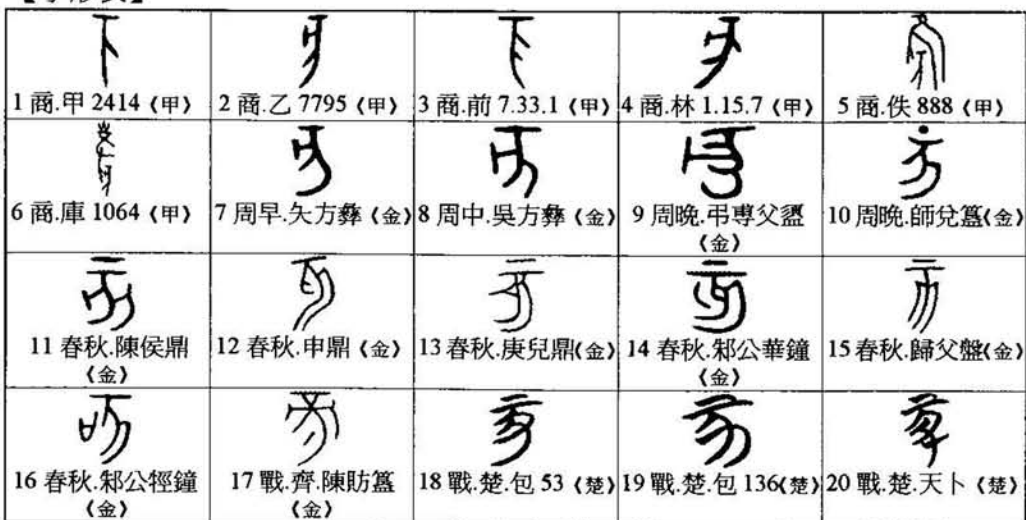 1 商.甲 2414《甲》
2 商.乙 7795《甲》
3 商.前 7.33.1《甲》
4 商.林 1.15.7《甲》
5 商.佚 888《甲》
6 商.庫 1064《甲》
7 周早.夨方彝《金》
8 周中.吳方彝《金》
9 周晚.弔專父盨
《金》
10 周晚.師兌簋《金》
11 春秋.陳侯鼎
《金》
12 春秋.申鼎《金》
13 春秋.庚兒鼎《金》
14 春秋.邾公華鐘
《金》
15 春秋.歸父盤《金》
16 春秋.邾公牼鐘
《金》
17 戰.齊.陳肪簋
《金》
18 戰.楚.包 53《楚》
19 戰.楚.包 136《楚》
20 戰.楚.天卜《楚》